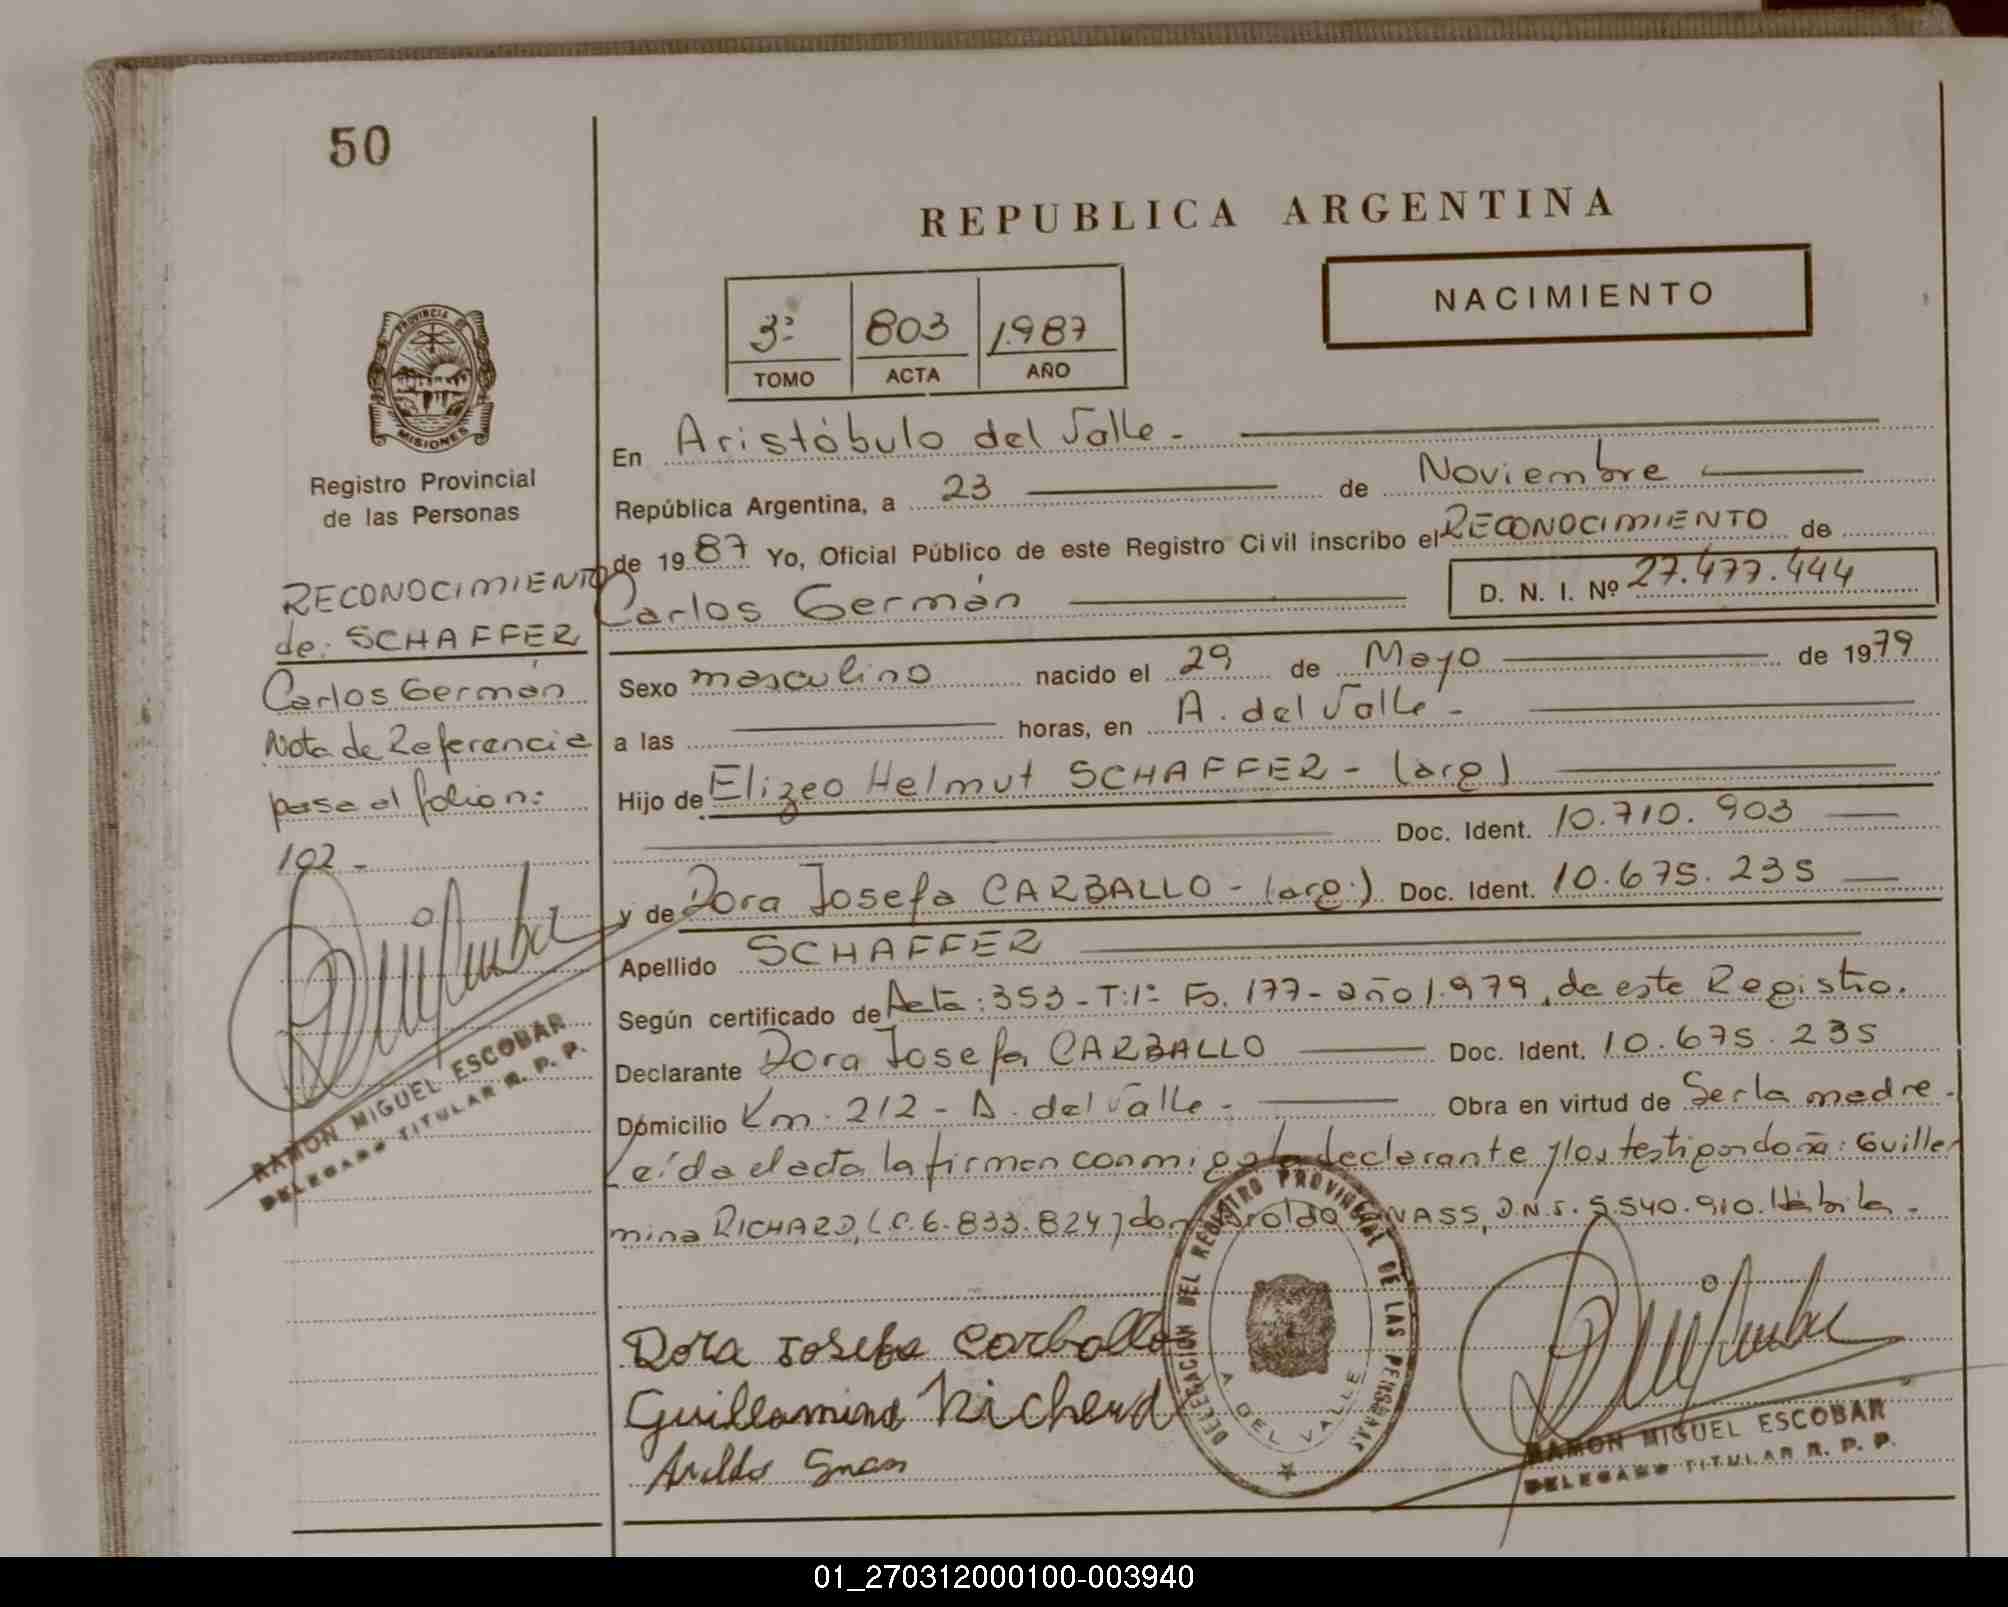 50
REPUBLICA ARGENTINA
NACIMIENTO
3º 803 1.987
TOMO ACTA AÑO
PROVINCIA DE
MISIONES
Registro Provincial
de las Personas
RECONOCIMIENTO
de: SCHAFFER
Carlos Germán
Nota de Referencia
pasa al folio n:
102-
RAMON MIGUEL ESCOBAR
DELEGADO TITULAR R. P. P.
En Aristóbulo del Valle-
República Argentina, a 23 de Noviembre
de 1987 Yo, Oficial Público de este Registro Civil inscribo el RECONOCIMIENTO de
Carlos Germán D. N. I. Nº 27.477.444
Sexo masculino nacido el 29 de Mayo de 1979
a las horas, en A. del Valle-
Hijo de Elizeo Helmut SCHAFFER - (arg)
Doc. Ident. 10.710.903
y de Dora Josefa CARBALLO - (arg.) Doc. Ident. 10.675.235
Apellido SCHAFFER
Según certificado de Acta: 353 - T:1º Fo. 177 - año 1.979, de este Registro.
Declarante Dora Josefa CARBALLO Doc. Ident. 10.675.235
Domicilio Km. 212 - A. del Valle - Obra en virtud de Ser la madre.
Leída el acta la firman conmigo la declarante y los testigos doña: Guiller
mina RICHARD, L.C. 6.833.824 y don D.N.I. 5.540.910. Hábila.
Dora Josefa Carballo
Guillermina Richard
DELEGACION DEL REGISTRO PROVINCIAL DE LAS PERSONAS
A DEL VALLE
RAMON MIGUEL ESCOBAR
DELEGADO TITULAR R. P. P.
01_270312000100-003940